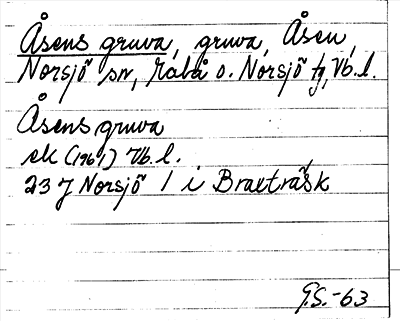 Åsens gruva, gruva, Åsen,
Norsjö sn, Malå o. Norsjö tg, Vb. l.
Åsens gruva
ek (1961) Vb. l.
23 J Norsjö 1 i Braxträsk
G.S. -63